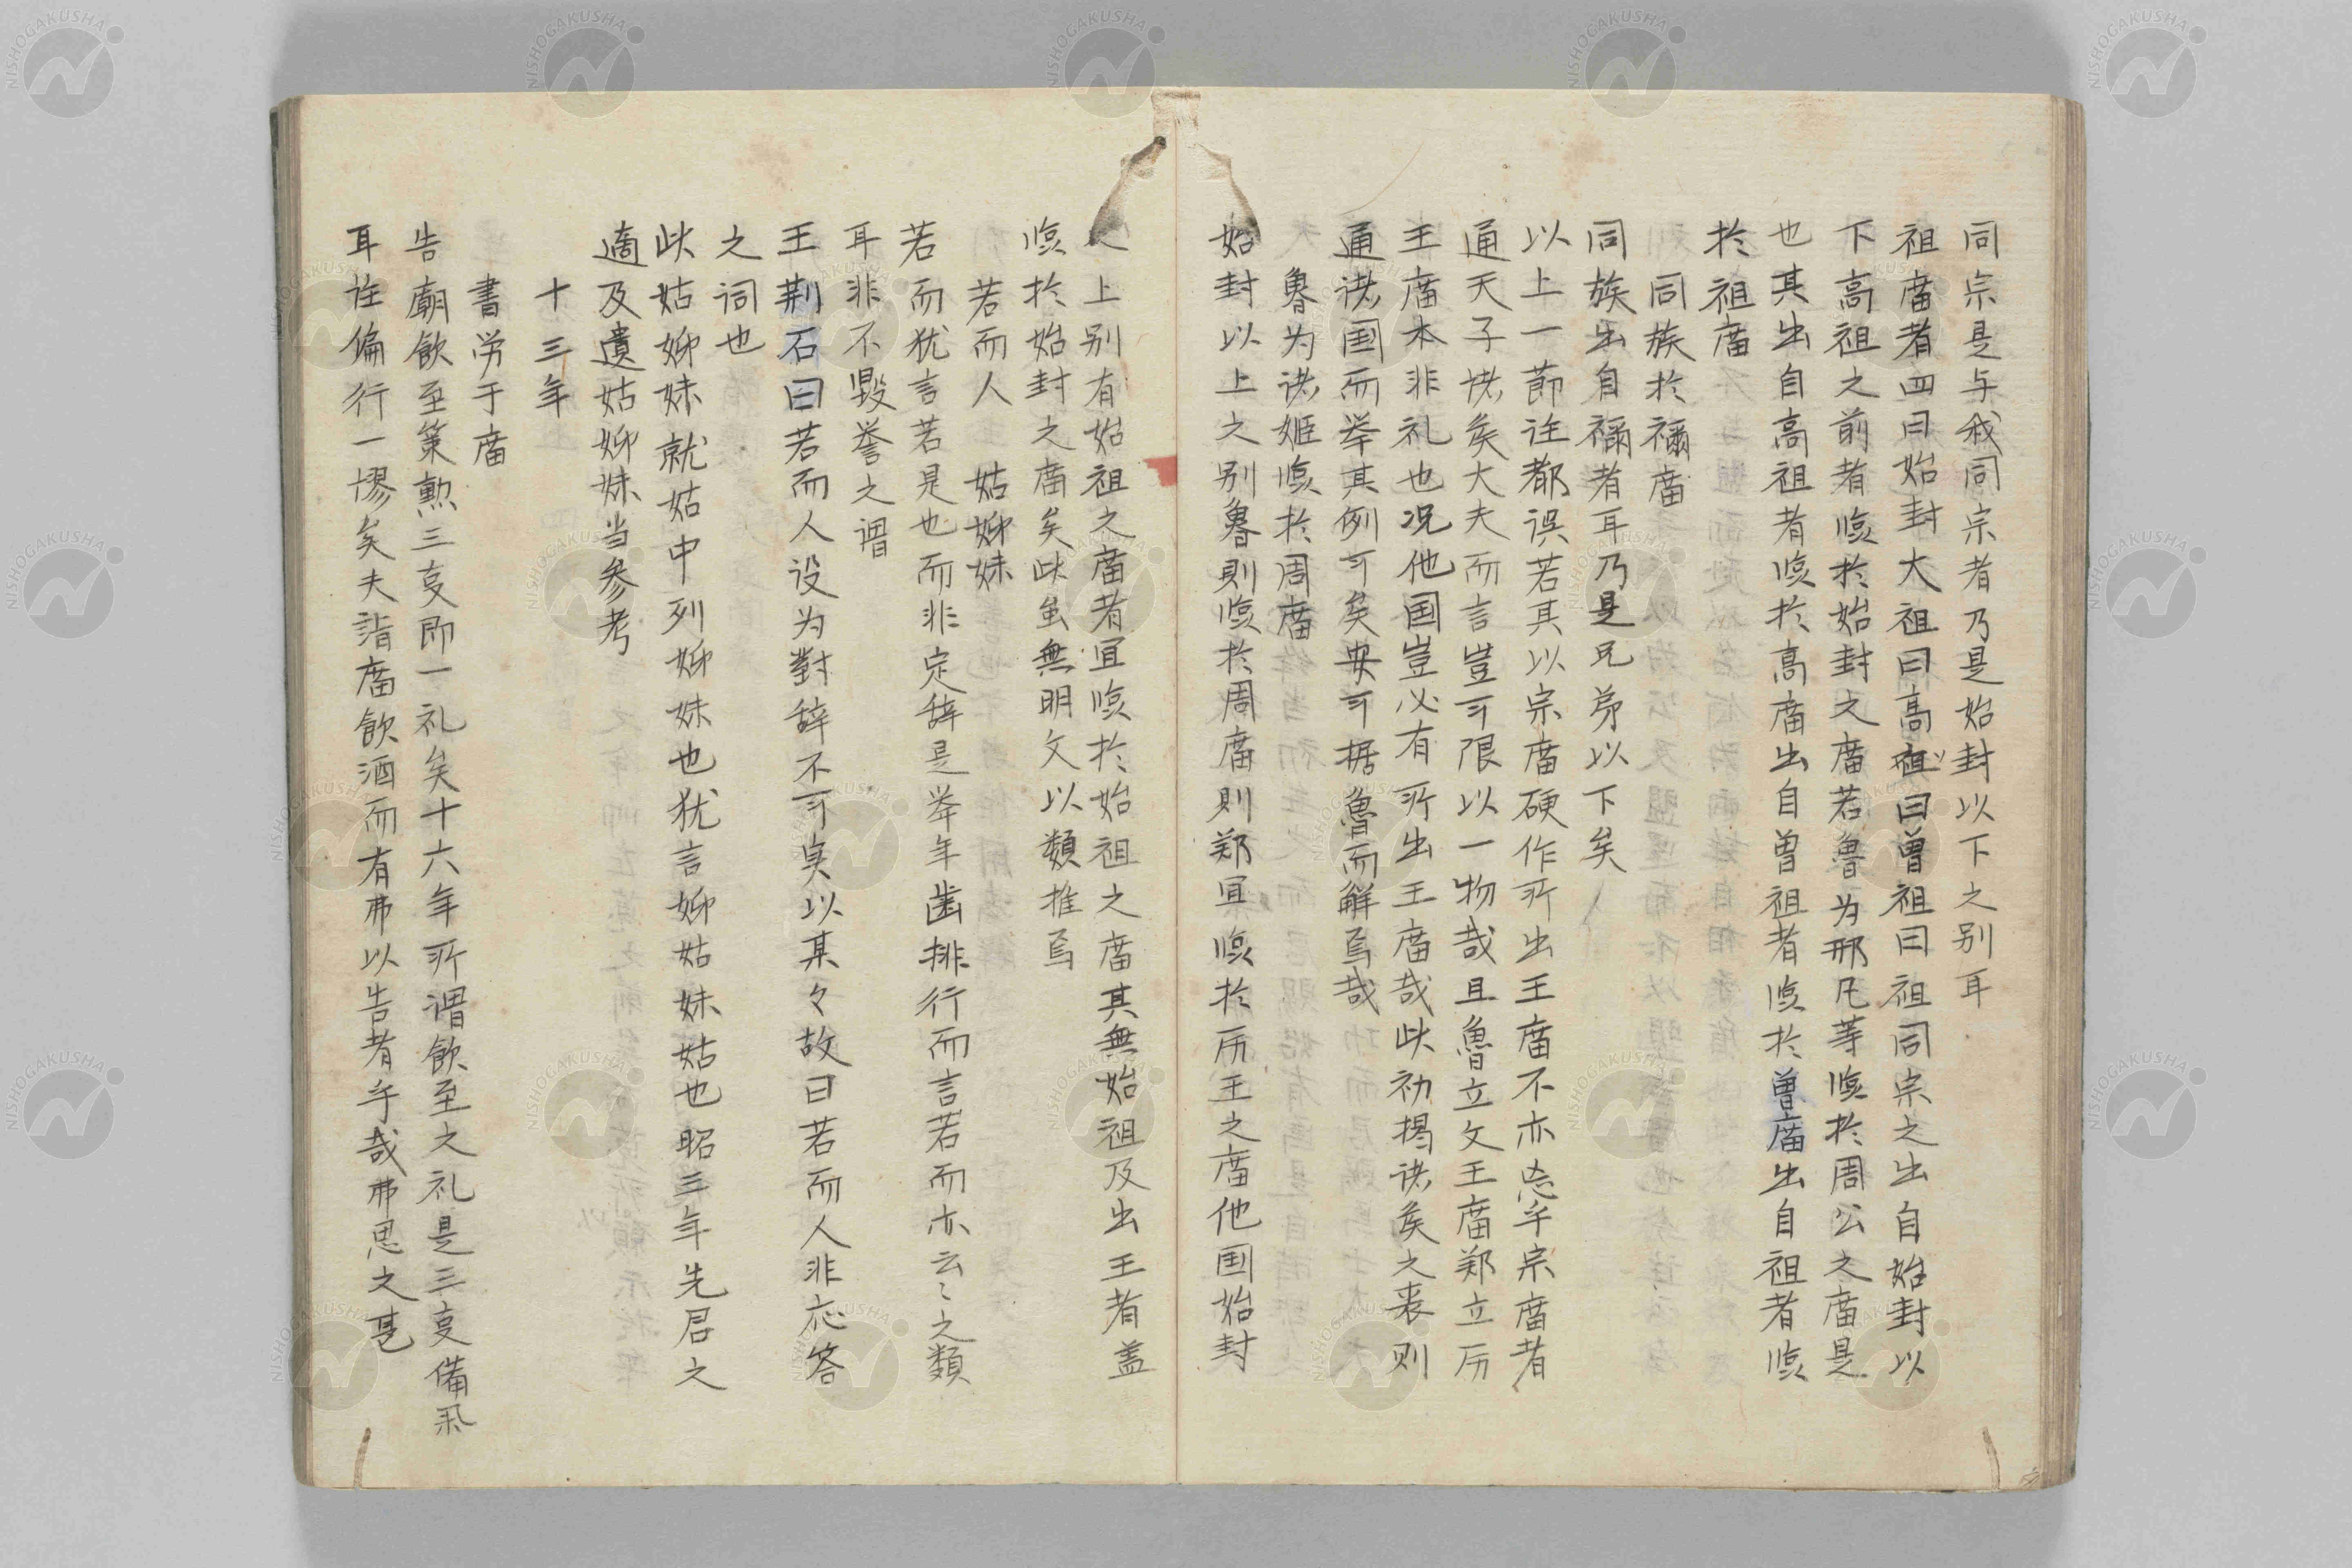 同宗是与我同宗者乃是始封以下之别耳
祖庿者四曰始封大祖曰高祖曰曽祖曰祖同宗之出自始封以
下高祖之前者临於始封之庿若魯为邢凡等临於周公之庿是
也其出自高祖者临於高庿出自曽祖者临於曽庿出自祖者临
於祖庿
同族於禰庿
同族出自禰者耳乃是兄弟以下矣
以上一莭注都误若其以宗庿硬作所出王庿不亦忘乎宗庿者
通天子诸矦大夫而言豈可限以一物哉且魯立文王庿郑立厉
王庿本非礼也况他国豈必有所出王庿哉此初揭诸矦之丧则
通诸国而举其例可矣安可据魯而解焉哉
魯为诸姬临於周庿
始封以上之别魯則临於周庿則郑冝临於厉王之庿他国始封
之上别有始祖之庿者冝临於始祖之庿其無始祖及出王者盖
临於始封之庿矣此虽無明文以類推焉
若而人　姑姊妹
若而犹言若是也而非定辞是举年歯排行而言若而亦云〻之類
耳非不毀誉之谓
王荆石曰若而人设为對辞不可実以某々故曰若而人非応答
之词也
此姑姊妹就姑中列姊妹也犹言姊姑妹姑也昭三年先君之
適及遺姑姊妹当参考
十三年
書労于庿
告廟飲至策勲三㕝即一礼矣十六年所谓飲至之礼是三㕝備
耳注偏行一㦝矣夫詣庿飲酒而有弗以告者乎哉弗思之甚